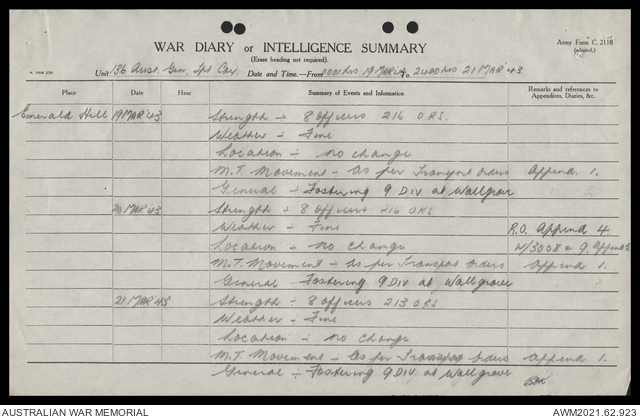 Army Form C. 2118
(adapted.)
WAR DIARY or INTELLIGENCE SUMMARY
(Erase heading not required).
Unit 136 Aust. Gen. Tpt Coy. Date and Time.—From 0001 hrs 19 MAR 43 To 2400 hrs 21 MAR '43
Place Date Hour Summary of Events and Information Remarks and references to Appendices, Diaries, &c.
Emerald Hill 19 MAR '43 Strength - 8 Officers 216 O.R.S.
Weather - Fine
Location - no change
M.T. Movement - As per Transport Orders Append. 1.
General - Fostering 9 DIV at Wallgrove
20 MAR '43 Strength - 8 Officers 216 ORS
Weather - Fine R.O. Append 4
Location - no change W/3008 9.
M.T. Movement - As per Transport Orders Append 1.
General - Fostering 9 DIV at Wallgrove
21 MAR '43 Strength - 8 Officers 213 ORS
Weather - Fine
Location - no change
M.T. Movement - As per Transport Orders Append 1.
General - Fostering 9 DIV at Wallgrove
AUSTRALIAN WAR MEMORIAL AWM2021.62.923